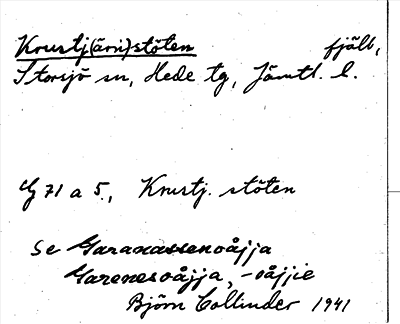 Krustj(ärn)stöten fjäll,
Storsjö sn, Hede tg, Jämtl. l.
G 71 a 5., Krustj. stöten
Se Garanassenoåjja
Garenesoåjja, -oåjjie
Björn Collinder 1941